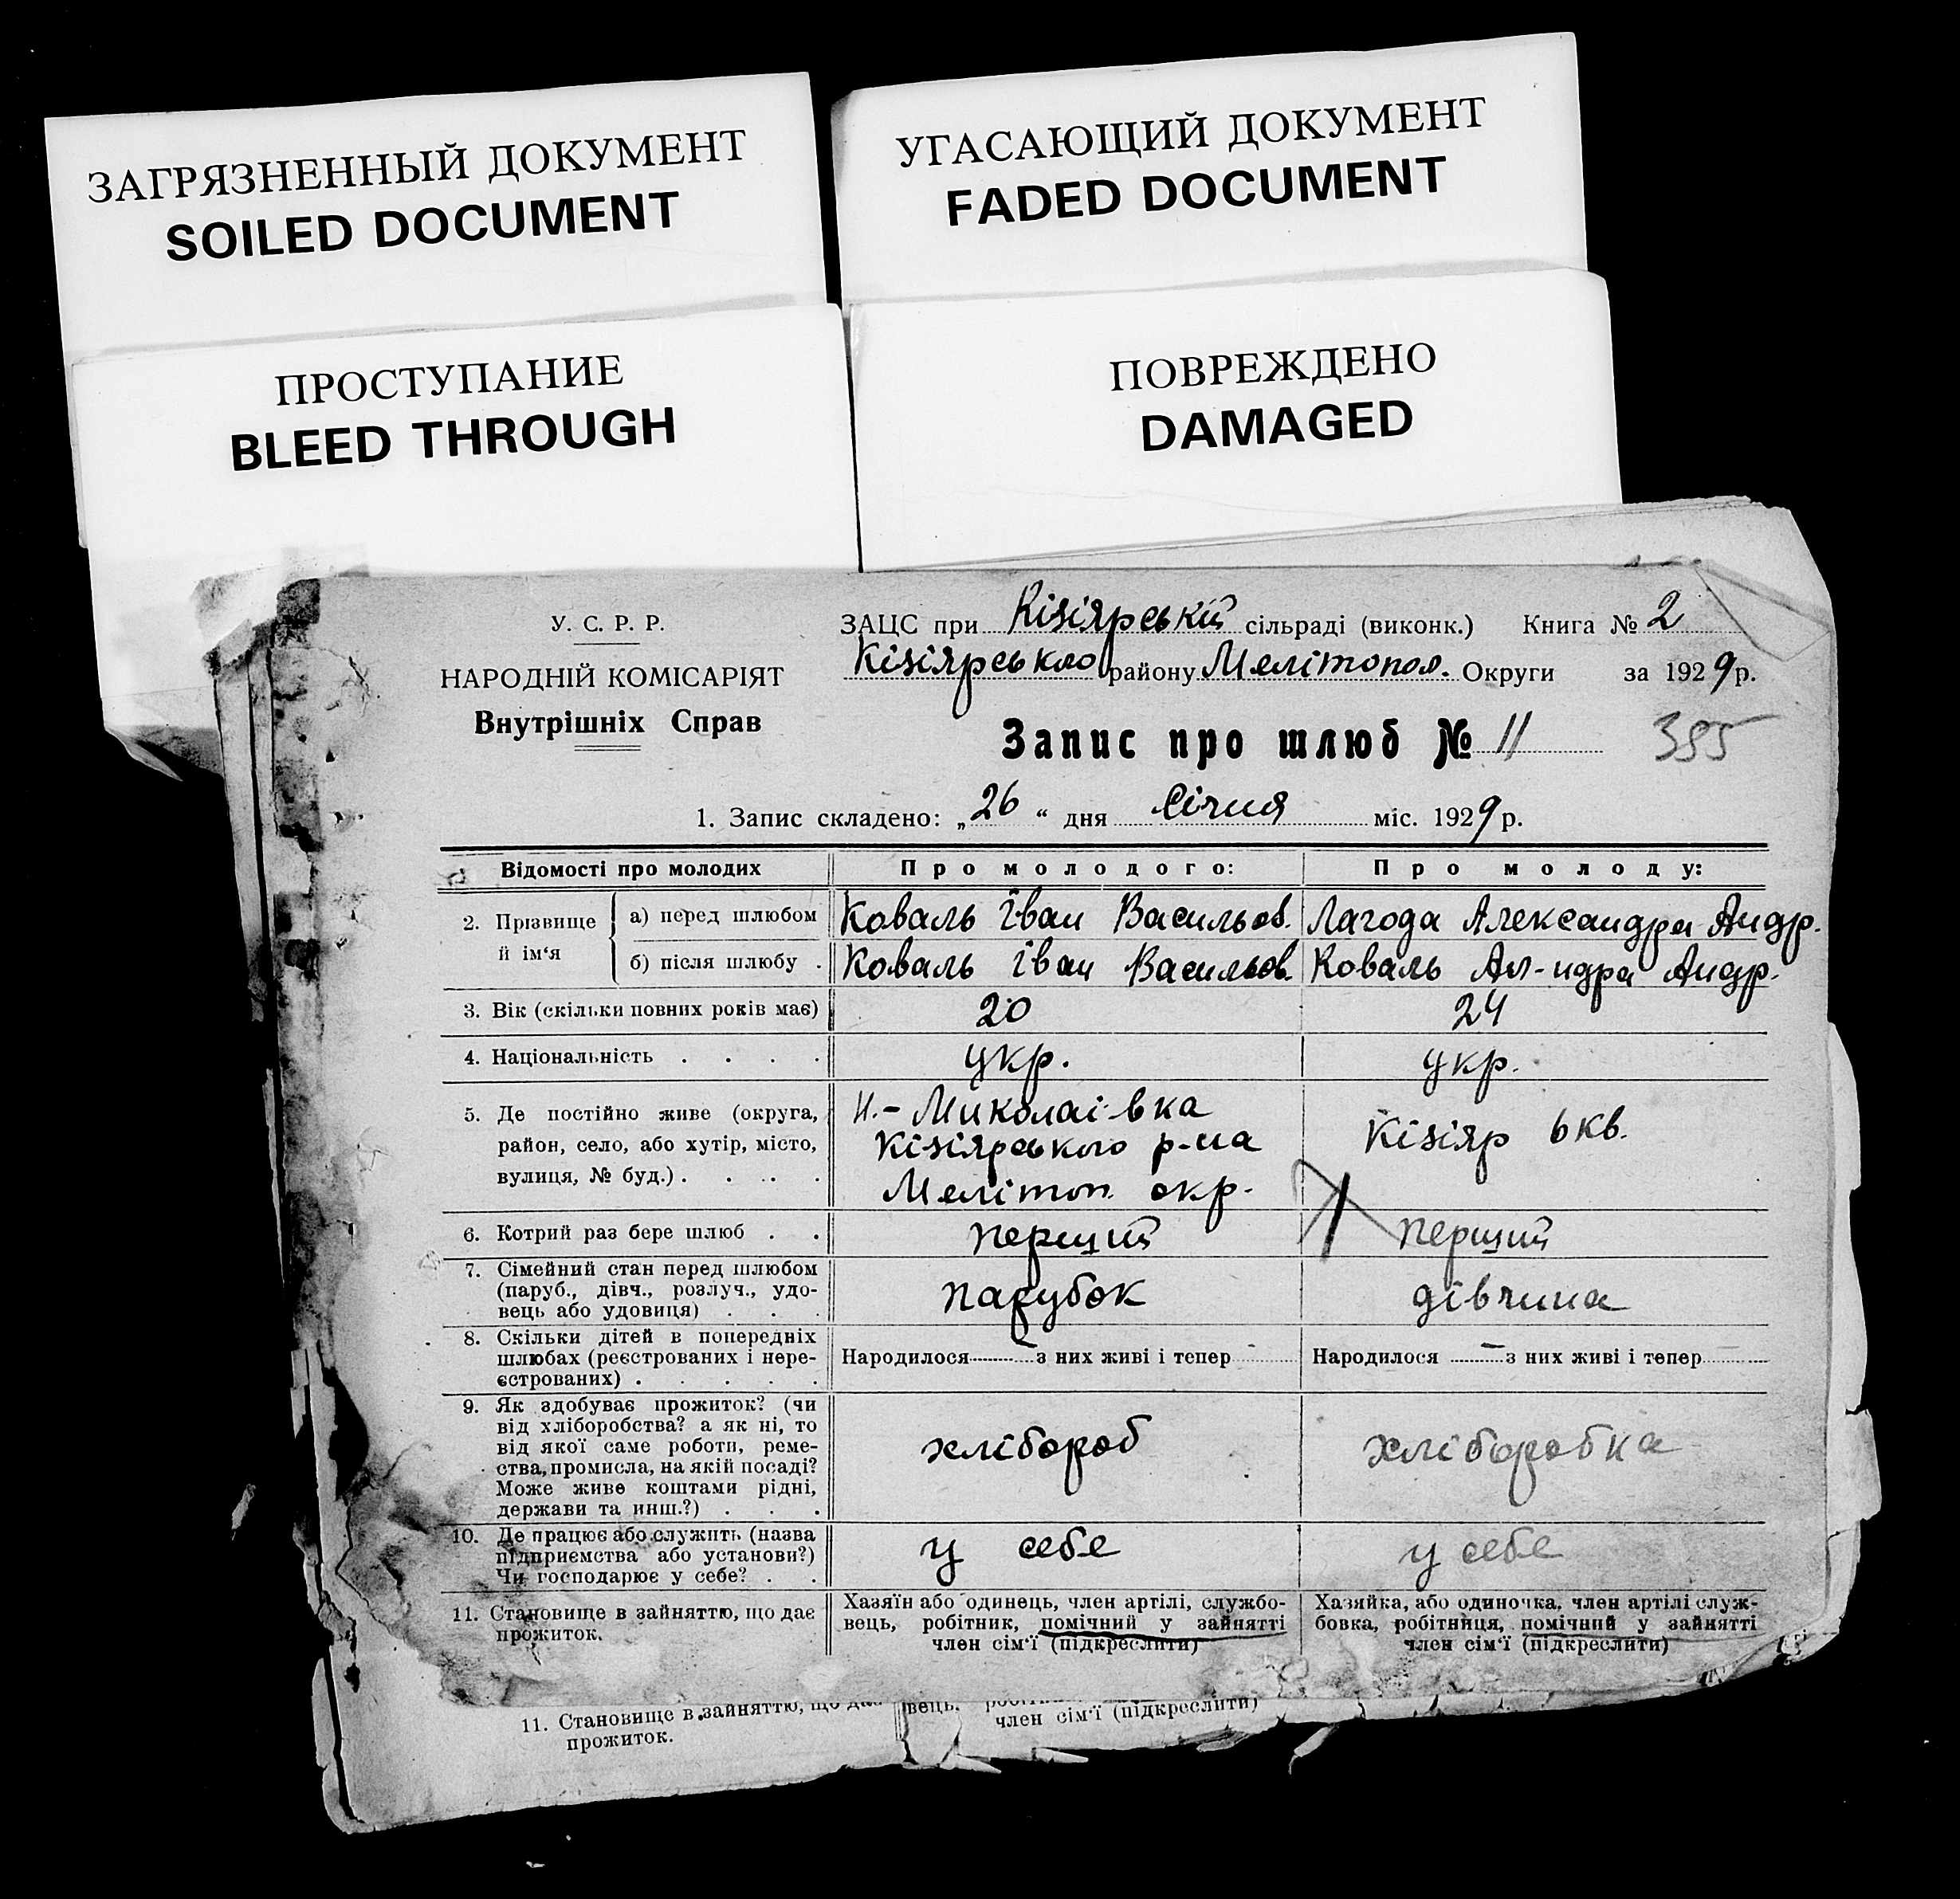 ЗАГРЯЗНЕННЫЙ ДОКУМЕНТ
SOILED DOCUMENT
УГАСАЮЩИЙ ДОКУМЕНТ
FADED DOCUMENT
ПРОСТУПАНИЕ
BLEED THROUGH
ПОВРЕЖДЕНО
DAMAGED
У. С. Р. Р.
НАРОДНІЙ КОМІСАРІЯТ
Внутрішніх Справ
ЗАЦС при Кізіярській сільраді (виконк.) Книга № 2
Кізіярського району Мелітопол. Округи за 1929 р.
Запис про шлюб № 11
395
1. Запис складено: „26“ дня Січня міс. 1929 р.
Відомості про молодих
Про молодого:
Про молоду:
2. Прізвище й ім‘я
а) перед шлюбом
Коваль Іван Васильов.
Лагода Александра Андр.
б) після шлюбу .
Коваль Іван Васильов.
Коваль Ал-ндра Андр.
3. Вік (скільки повних років має)
20
24
4. Національність . . . .
укр.
укр.
5. Де постійно живе (округа,
район, село, або хутір, місто,
вулиця, № буд.) . . . .
Н.-Миколаївка
Кізіярського р-на
Мелітоп. окр.
Кізіяр 6 кв.
6. Котрий раз бере шлюб . .
перший
перший
7. Сімейний стан перед шлюбом
(паруб., дівч., розлуч., удо-
вець або удовиця) . . .
парубок
дівчина
8. Скільки дітей в попередніх
шлюбах (реєстрованих і нере-
єстрованих) . . . . .
Народилося — з них живі і тепер
Народилося — з них живі і тепер
9. Як здобуває прожиток? (чи
від хліборобства? а як ні, то
від якої саме роботи, реме-
ства, промисла, на якій посаді?
Може живе коштами рідні,
держави та инш.?) . . .
хлібороб
хліборобка
10. Де працює або служить (назва
підприємства або установи?)
Чи господарює у себе? . .
у себе
у себе
11. Становище в зайняттю, що дає
прожиток.
Хазяїн або одинець, член артілі, службо-
вець, робітник, помічний у зайнятті
член сім‘ї (підкреслити)
Хазяйка, або одиночка, член артілі служ-
бовка, робітниця, помічний у зайнятті
член сім‘ї (підкреслити)
11. Становище в зайняттю, що дає
прожиток.
вець,
член сім‘ї (підкреслити)